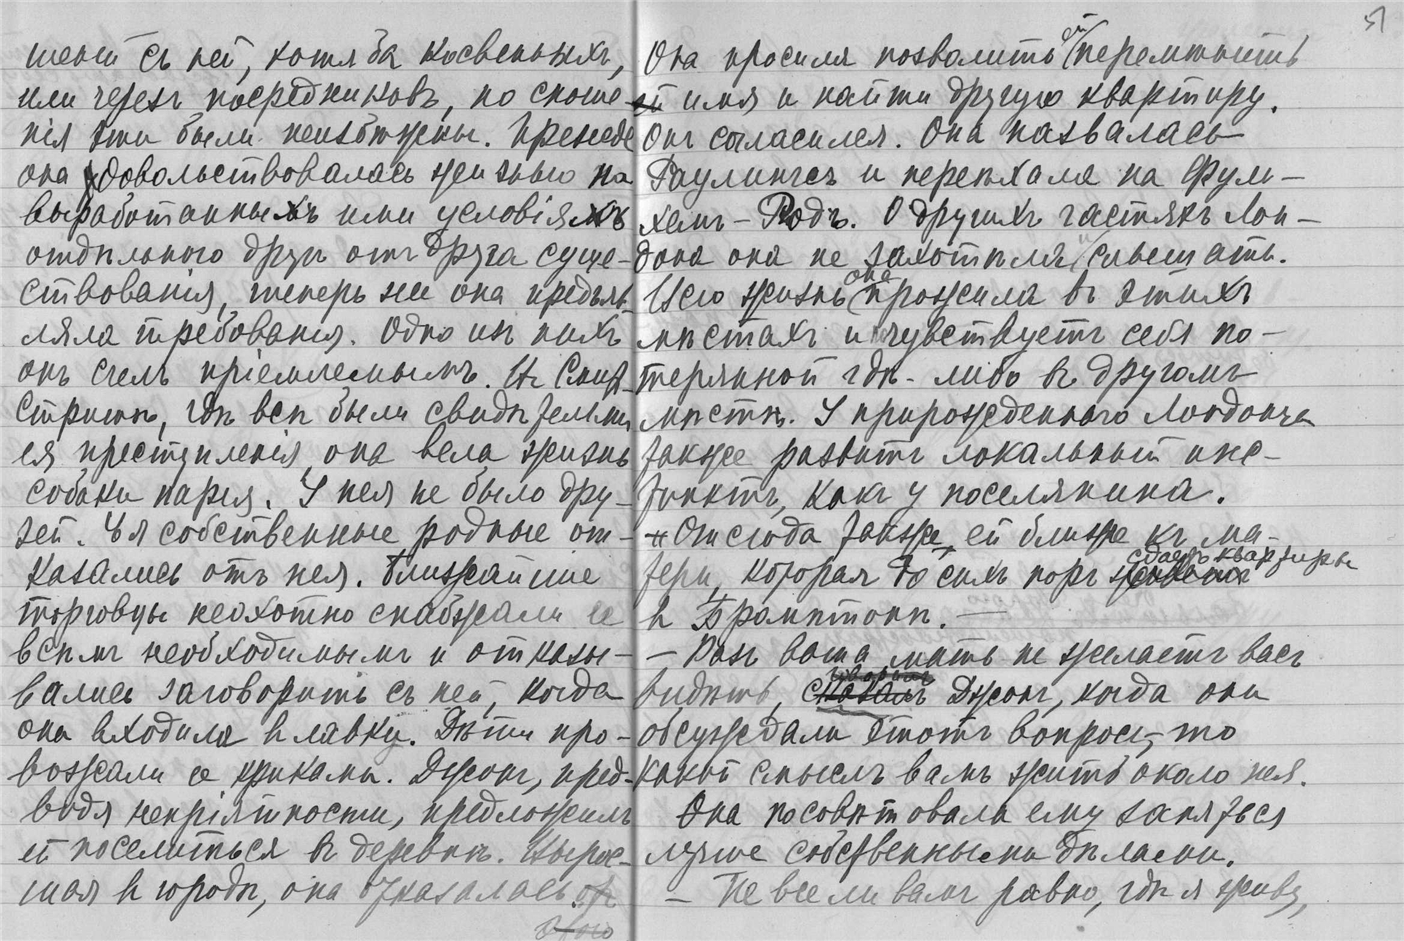 шеній съ ней, хотя ба косвенныхъ,
или черезъ посредниковъ, но сноше-
нія эти были неизбѣжны. Прежде
она удовольствовалась жизнью на
выработанныхъ ими условіяхъ
отдѣльного другъ отъ друга суще-
ствованія, теперь же она предъяв-
ляла требованія. Одно изъ нихъ
онъ счелъ пріемлемымъ. Въ
стритѣ, гдѣ всѣ были свидѣтелями
ея преступленія, она вела жизнь
собаки паріа. У нея не было дру-
зей. Ея собственные родные от-
казались отъ нея. Ближайшіе
торговцы неохотно снабжали ее
всѣмъ необходимымъ и отказы-
вались заговорить съ ней, когда
она входила въ лавку. Дѣти про-
вожали ее криками. Джонъ, пред-
видя непріятности, предложилъ
ей поселиться въ деревнѣ. Вырос-
шая въ городѣ, она отказалась отъ
этого
57
Она просила позволить ей перемѣнить
имя и найти другую квартиру.
Онъ согласился. Она назвалась
Раулингсъ и переѣхала на Фуль-
хемъ-Родъ. О другихъ частяхъ Лон-
дона она не захотѣла и слышать.
Всю жизнь она прожила въ этихъ
мѣстахъ и чувствуетъ себя по-
терянной гдѣ-либо въ другомъ
мѣстѣ. У прирожденного Лондонца
также развитъ локальный инс-
тинктъ, какъ у поселянина.
— Отсюда также ей ближе къ ма-
тери, которая до сихъ поръ сдаетъ квартиры
въ Бромптонѣ. —
— Разъ ваша мать не желаетъ васъ
видѣть, говорилъ Джонъ, когда они
обсуждали этотъ вопросъ, то
какой смыслъ вамъ жить около нея.
Она посовѣтовала ему заняться
лучше собственными дѣлами.
— Не все ли вамъ равно, гдѣ я живу,